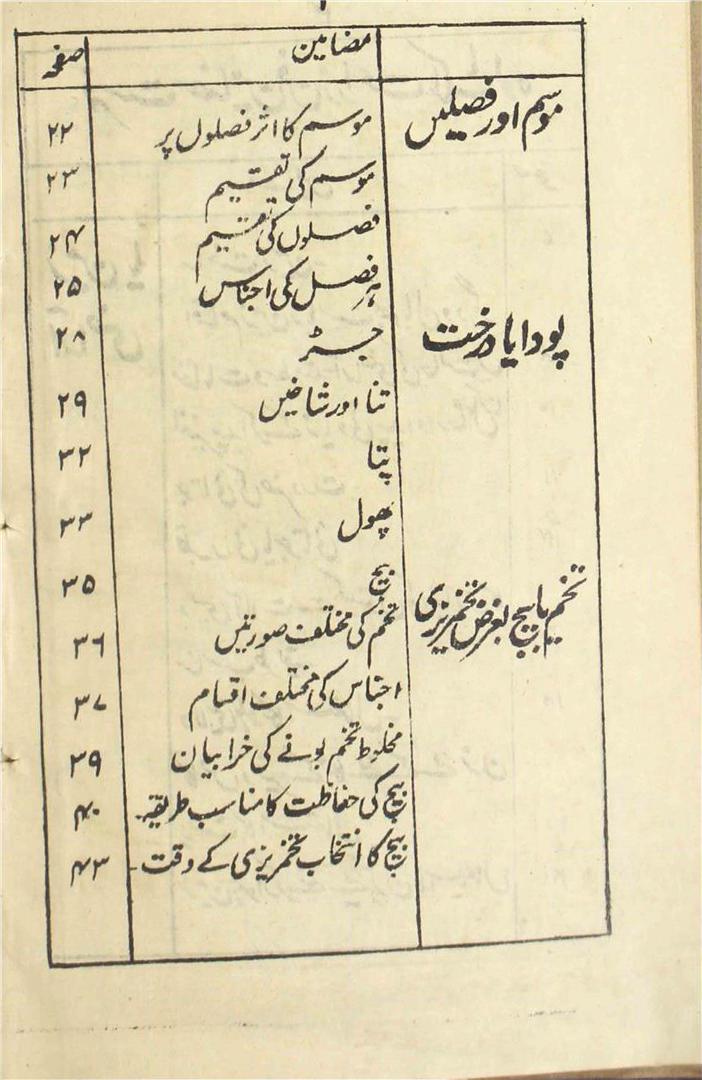 مضامین صفحہ
موسم اور فصلیں موسم کا اثر فصلوں پر ۲۲
موسم کی تقسیم ۲۳
فصلوں کی تقسیم ۲۴
ہر فصل کی اجناس ۲۵
پودا یا درخت جڑ ۲۸
تنا اور شاخیں ۲۹
پتا ۳۲
پھول ۳۳
بیج ۳۵
تخم یا بیج بغرض تخمریزی تخم کی مختلف صورتیں ۳۶
اجناس کی مختلف اقسام ۳۷
مخلوط تخم بونے کی خرابیان ۳۹
بیج کی حفاظت کا مناسب طریقہ۔ ۴۰
بیج کا انتخاب تخمریزی کے وقت۔ ۴۳